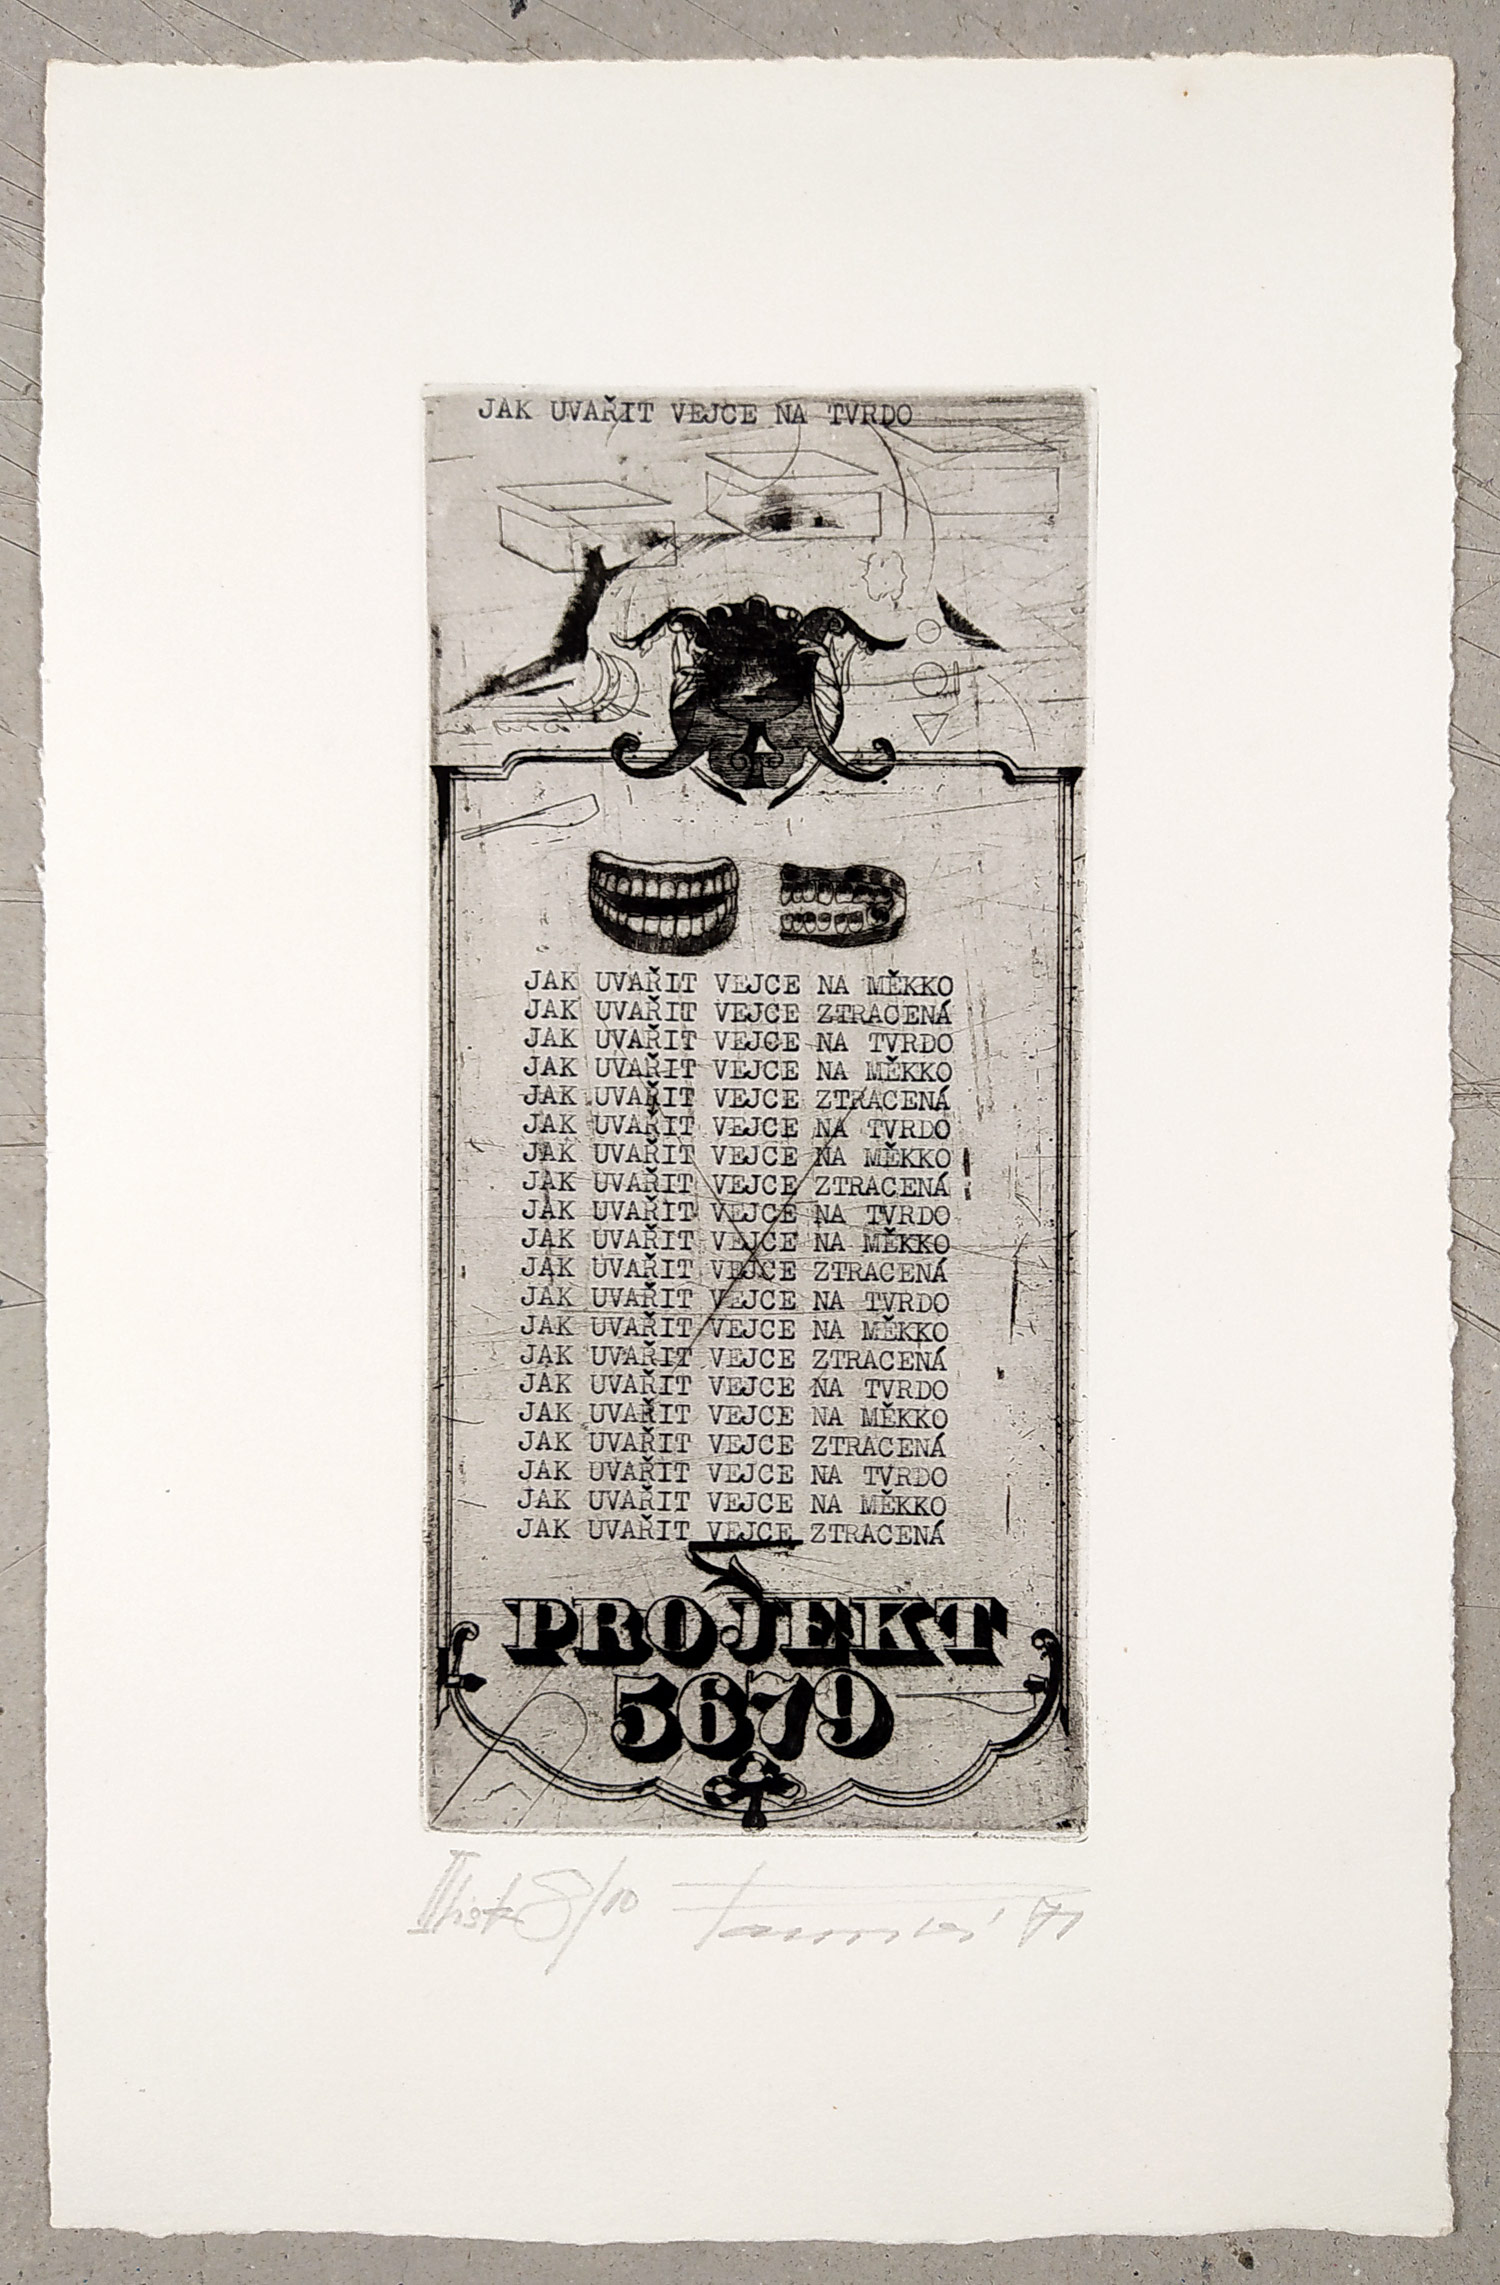 JAK UVAŘIT VEJCE NA TVRDO
JAK UVAŘIT VEJCE NA MĚKKO
JAK UVAŘIT VEJCE ZTRACENÁ
JAK UVAŘIT VEJCE NA TVRDO
JAK UVAŘIT VEJCE NA MĚKKO
JAK UVAŘIT VEJCE ZTRACENÁ
JAK UVAŘIT VEJCE NA TVRDO
JAK UVAŘIT VEJCE NA MĚKKO
JAK UVAŘIT VEJCE ZTRACENÁ
JAK UVAŘIT VEJCE NA TVRDO
JAK UVAŘIT VEJCE NA MĚKKO
JAK UVAŘIT VEJCE ZTRACENÁ
JAK UVAŘIT VEJCE NA TVRDO
JAK UVAŘIT VEJCE NA MĚKKO
JAK UVAŘIT VEJCE ZTRACENÁ
JAK UVAŘIT VEJCE NA TVRDO
JAK UVAŘIT VEJCE NA MĚKKO
JAK UVAŘIT VEJCE ZTRACENÁ
JAK UVAŘIT VEJCE NA TVRDO
JAK UVAŘIT VEJCE NA MĚKKO
JAK UVAŘIT VEJCE ZTRACENÁ
PROJEKT
5679
8/10